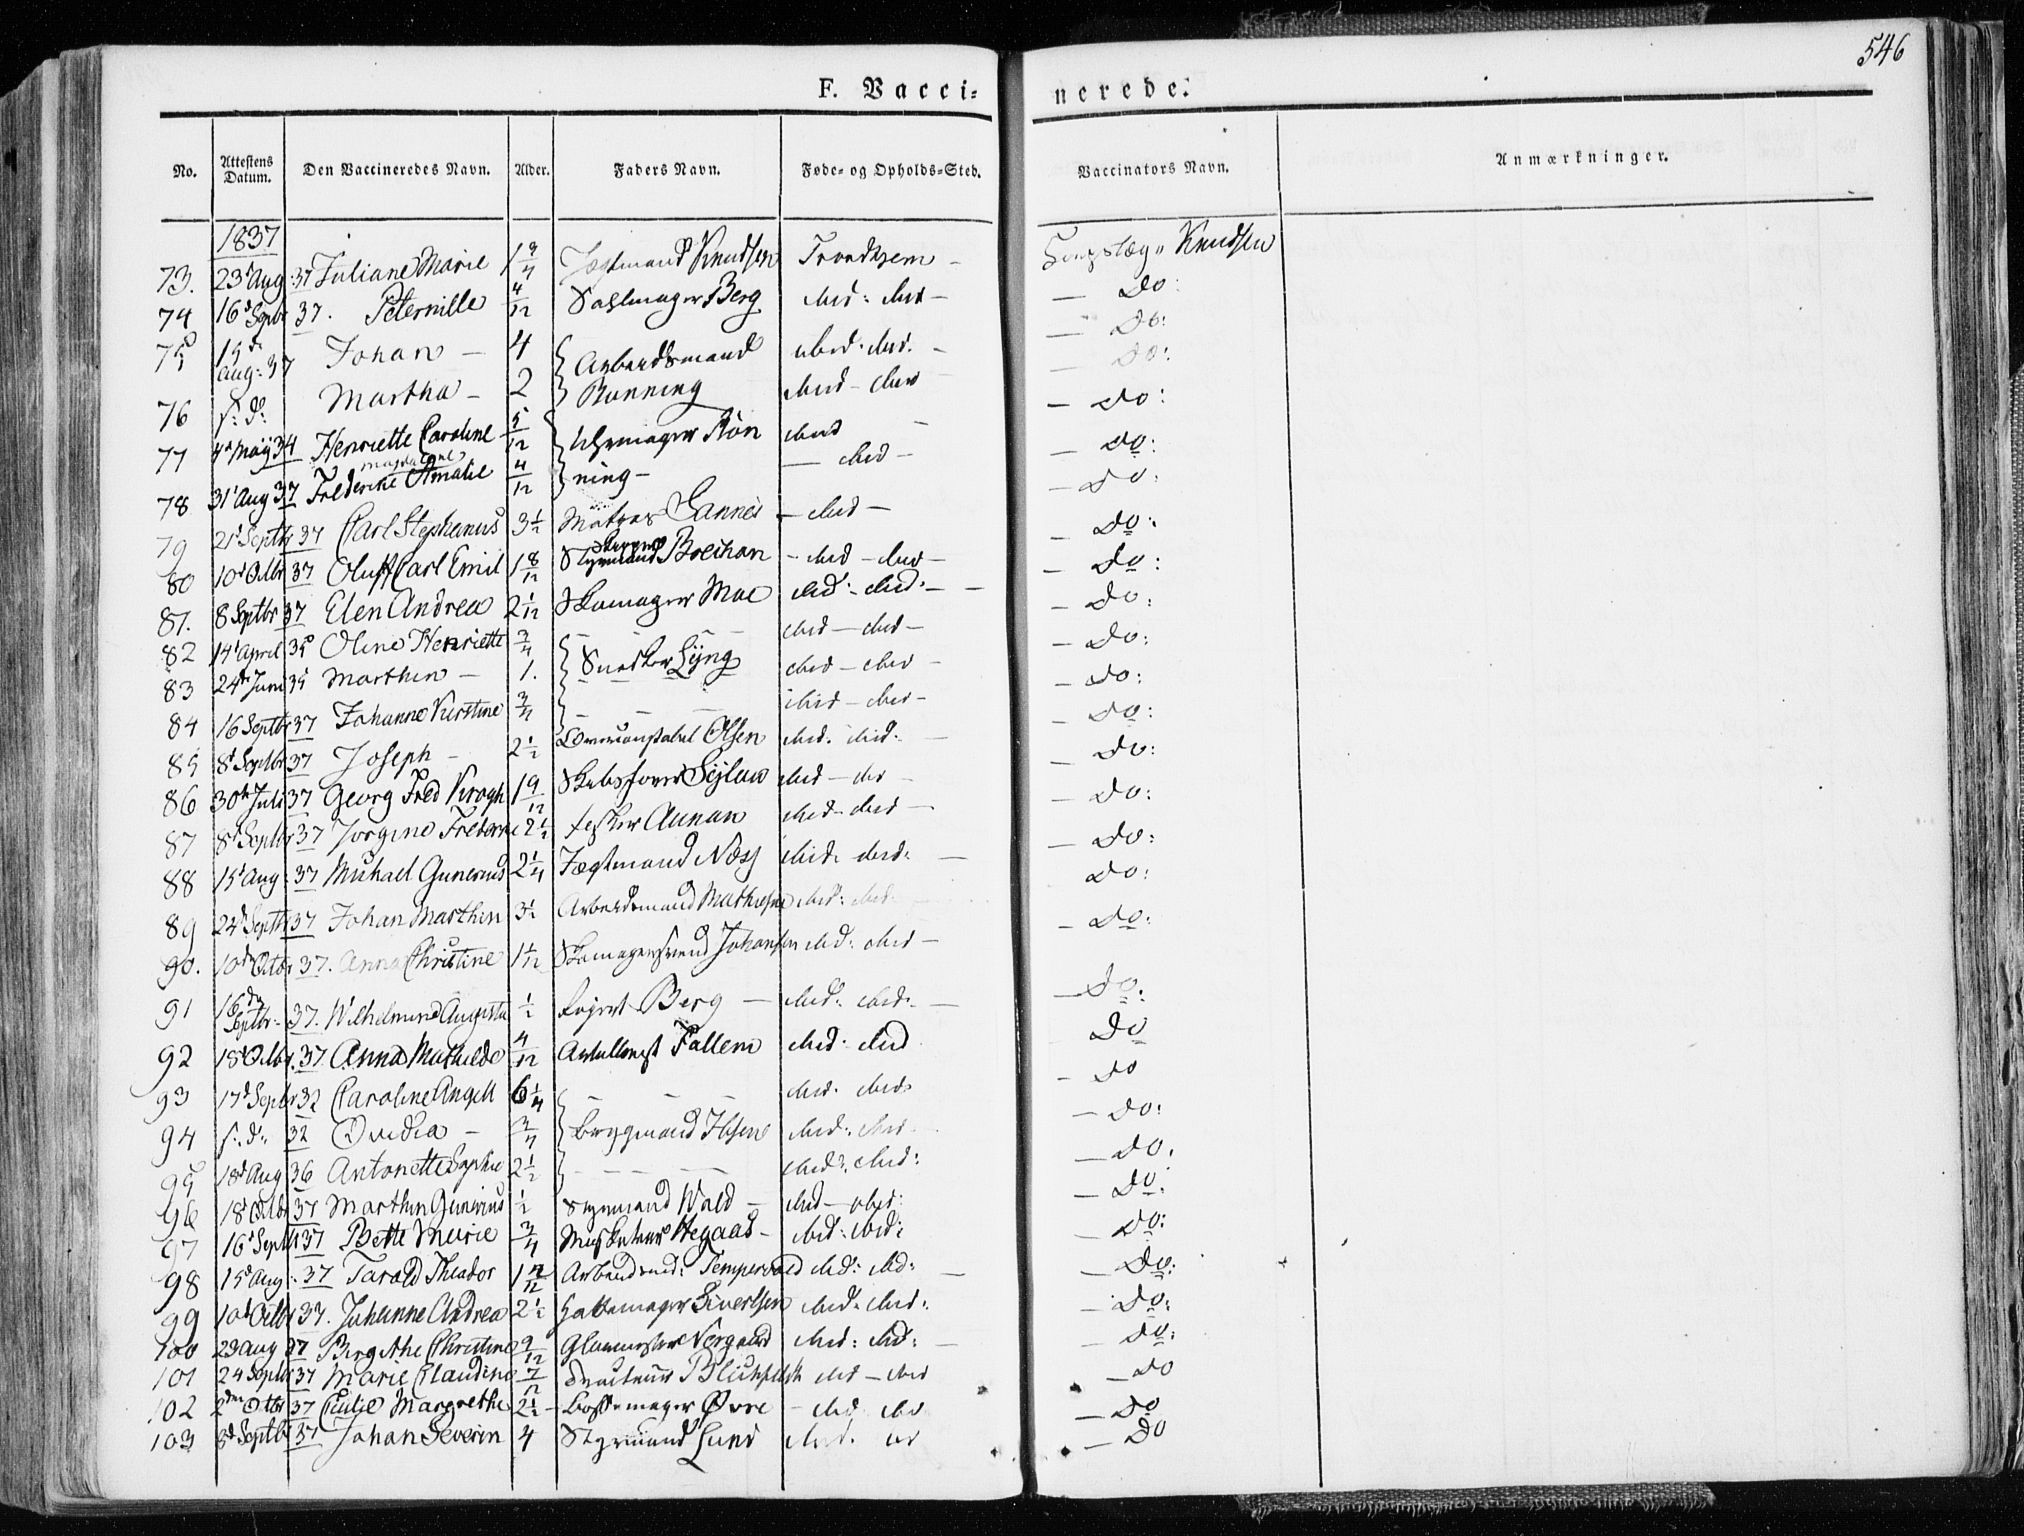 546
F. Vacci- nerede.
No. Attestens Datum. Den Vaccineredes Navn. Alder. Faders Navn. Føde- og Opholds-Sted. Vaccinators Navn. Anmærkninger.
1837
73. 23d Aug: 37 Juliane Marie 1 3/4 Jægtmand Knudsen Trondhjem - Knudsen
74 16d Septbr 37. Peternille 4/12 Sahlmager Berg ibid: ibid - Do:
75 15de Aug: 37 Johan - 4 Arbeidsmand ibid: ibid. - Do:
76 s: d: Martha - 2 Rønning ibid - ibid Do:
77 4d Maÿ 34 Henriette Caroline 5/12 Uhrmager Røn ibid - Do:
78 31d Aug 37 Frederike Magdalene Amalie 4/12 ning - - ibid - Do:
79 21d Septbr 37 Carl Stephanus 3 1/2 Matros Lannes - ibid - Do:
80 10d Octbr 37 Oluff Carl Emil 1 8/12 Styrmand Breihan - ibid - ibid - Do:
81. 8 Septbr 37 Elen Andrea 2 1/12 Skomager Moe ibid: ibid: - Do:
82 14d April 35 Oline Henriette 3/4 - - - ibid - ibid - Do:
83 24de Juni 35 Marthin - 1. Snedker Lÿng ibid - ibid - Do:
84 16 Septbr 37 Johanne Kirstine 3/4 - - - ibid - ibid - Do:
85 8d Septbr 37 Joseph - 2 1/2 Overconstabel Olsen ibid. ibid: - Do:
86 30te Juli 37 Georg Fred Krogh 1 9/12 ibid - ibid - Do:
87 8d Septbr 37 Jorgine Frederikke 2 1/2 Aunan ibid - ibid - Do:
88 15d Aug: 37 Michael Gunerius 2 1/4 Jægtmand Næss ibid: ibid: - Do:
89 24d Septbr 37 Johan Marthin 3 1/2 Arbeidsmand Mathiesen ibid: ibid: Do:
90. 10d Octbr 37. Anna Christine 1 1/12 Skomagersvend Johansen ibid: ibid - Do:
91 16de Septbr - 37. Wilhelmine Augusta 1/2 Berg - ibid: ibid: - Do:
92 18d Octbr. 37 Anna Mathilde 4/12 Fallem ibid: ibid Do
93 17d Septbr 32 Caroline Angell 6 1/4 - - - ibid: ibid: Do
94 s: d: 32 Ovidia - 3/4 Brygmand Ibsen ibid: ibid - Do:
95 18d Aug 36 Antonette Sophie 2 1/2 - - - ibid: ibid: Do.
96 18d Octbr 37 Marthin Gunerius 1/2 Styrmand Wold - ibid - ibid: Do:
97 16d Septbr 37 Bette Marie 3/4 Musketeer Hegaas - ibid: ibid: Do:
98 15d Aug: 37 Tarald Theador 1 7/12 Arbeidsmd: Tempervold ibid: ibid: - Do:
99 10d Octbr 37. Johanne Andrea 2 1/2 Hattemager Sivertsen ibid: ibid: Do:
100 23 Aug 37 Birgithe Christine 9/12 Glarmester Norgaard ibid: ibid: - Do:
101 24 Septbr 37 Marie Claudine 7/12 ibid - ibid Do
102 2den Octbr 37 Cecilie Margrethe 2 1/2 - Øvre - ibid ibid Do
103 8d Septbr 37 Johan Severin 4 Styrmand Lund ibid. Do